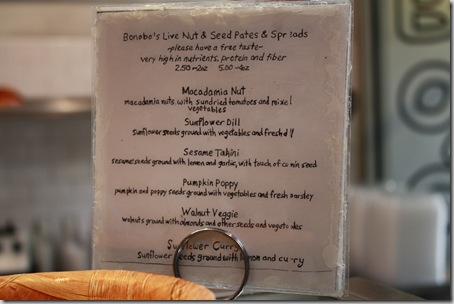 Bonobo's Live Nut & Seed Pates & Spreads
~please have a free taste~
very high in nutrients, protein and fiber
2.50 ~2oz 5.00 ~4oz
Macadamia Nut
macadamia nuts with sundried tomatoes and mixed
vegetables
Sunflower Dill
Sunflower seeds ground with vegetables and fresh dill
Sesame Tahini
sesame seeds ground with lemon and garlic, with touch of cumin seed
Pumpkin Poppy
pumpkin and poppy seeds ground with vegetables and fresh parsley
Walnut Veggie
walnuts ground with almonds and other seeds and vegetables
Sunflower Curry
Sunflower seeds ground with lemon and curry